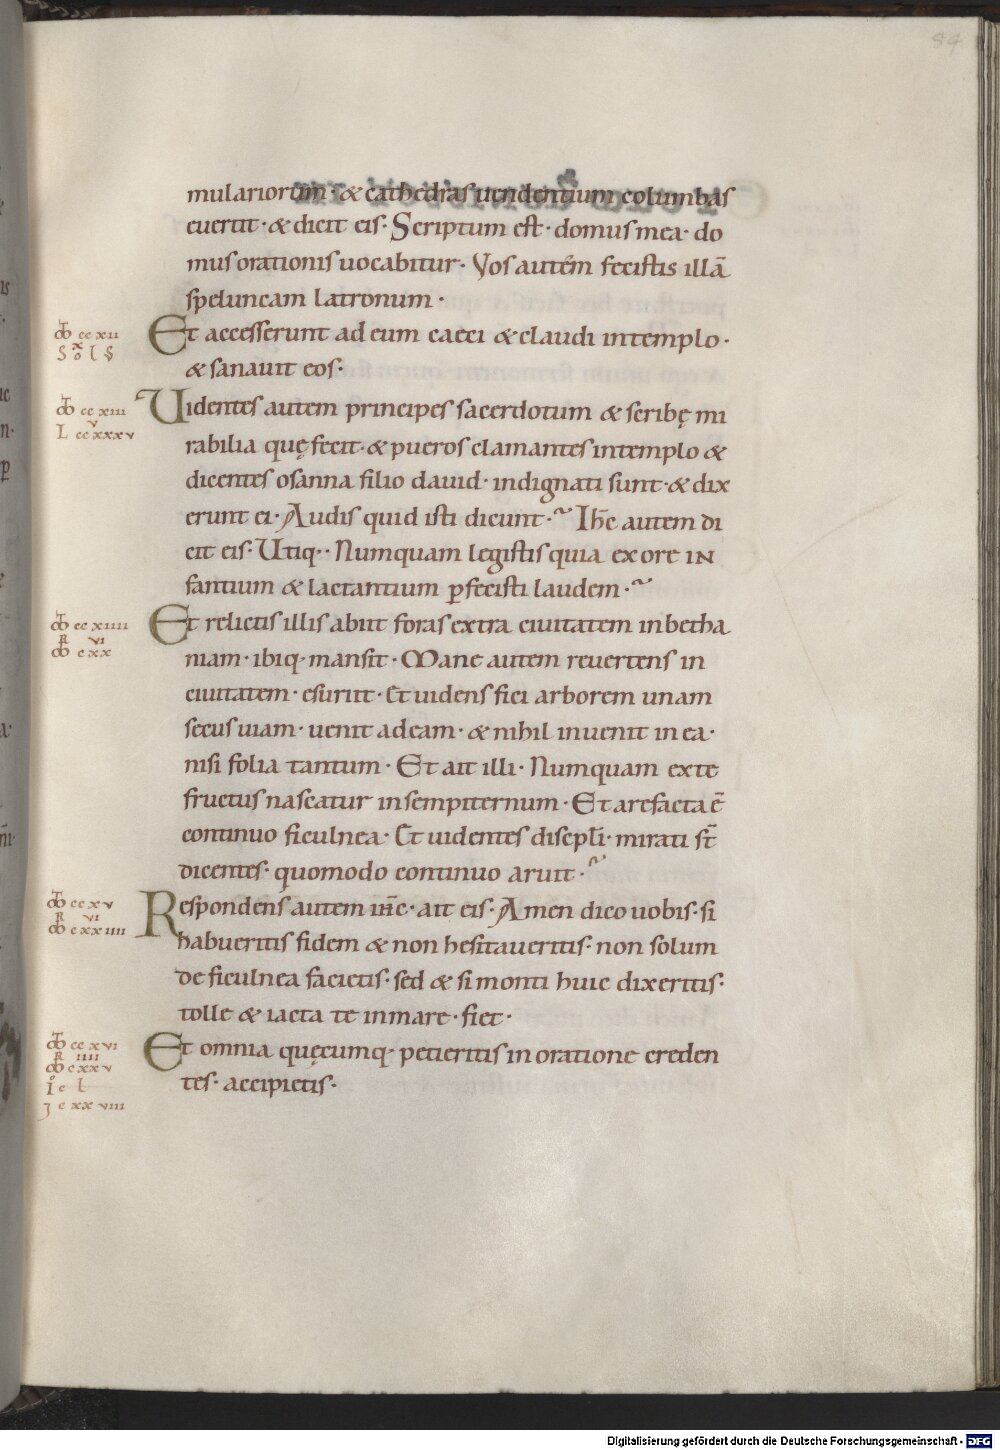 84
mulariorum · & cathedras uendentium columbas
euertit · & dicit eis · Scriptum est · domus mea · do
mus orationis uocabitur · Vos autem fecistis illā
speluncam latronum ·
Et accesserunt ad eum caeci & claudi in templo ·
& sanauit eos ·
Uidentes autem principes sacerdotum & scribę mi
rabilia quę fecit · & pueros clamantes in templo &
dicentes osanna filio dauid · indignati sunt · & dix
erunt ei · Audis quid isti dicunt · Ihc̄ autem di
cit eis · Utiq · · Numquam legistis quia ex ore in
fantium & lactantium ꝑfecisti laudem ·
Et relictis illis abiit foras extra ciuitatem in betha
niam · ibiq · mansit · Mane autem reuertens in
ciuitatem · esuriit · Et uidens fici arborem unam
secus uiam · uenit ad eam · & nihil inuenit in ea ·
nisi folia tantum · Et ait illi · Numquam ex te
fructus nascatur in sempiternum · Et arefacta ē
continuo ficulnea · Et uidentes discipli̅ · mirati st̄
dicentes · quomodo continuo aruit ·
Respondens autem ihc̄ · ait eis · Amen dico uobis · si
habueritis fidem & non hesitaueritis · non solum
de ficulnea facietis · sed & si monti huic dixeritis ·
tolle & iacta te in mare · fiet ·
Et omnia quęcumq · petieritis in oratione creden
tes · accipietis ·
cc xii
cc xiii
L cc xxx v
cc xiiii
R vi
c xx
cc x v
R vi
c xx iiii
cc x vi
R iiii
c xx v
c xx viii
Digitalisierung gefördert durch die Deutsche Forschungsgemeinschaft - DFG